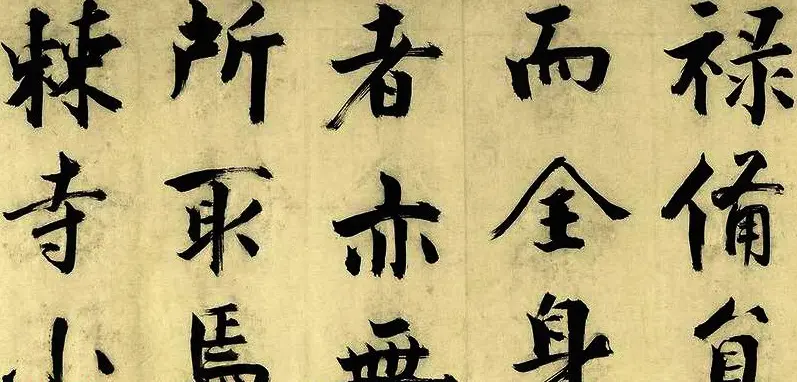 禄備員
而全身
者亦無
所取焉
棘寺小